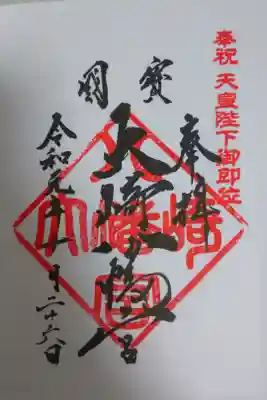 奉祝 天皇陛下御即位
國寶
奉拝
大崎八幡宮
令和元年十一月二十六日